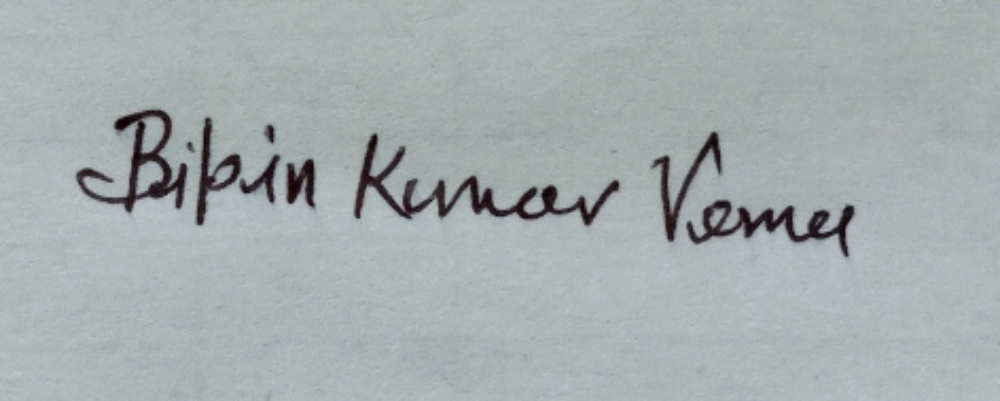 Bipin Kumar Verma